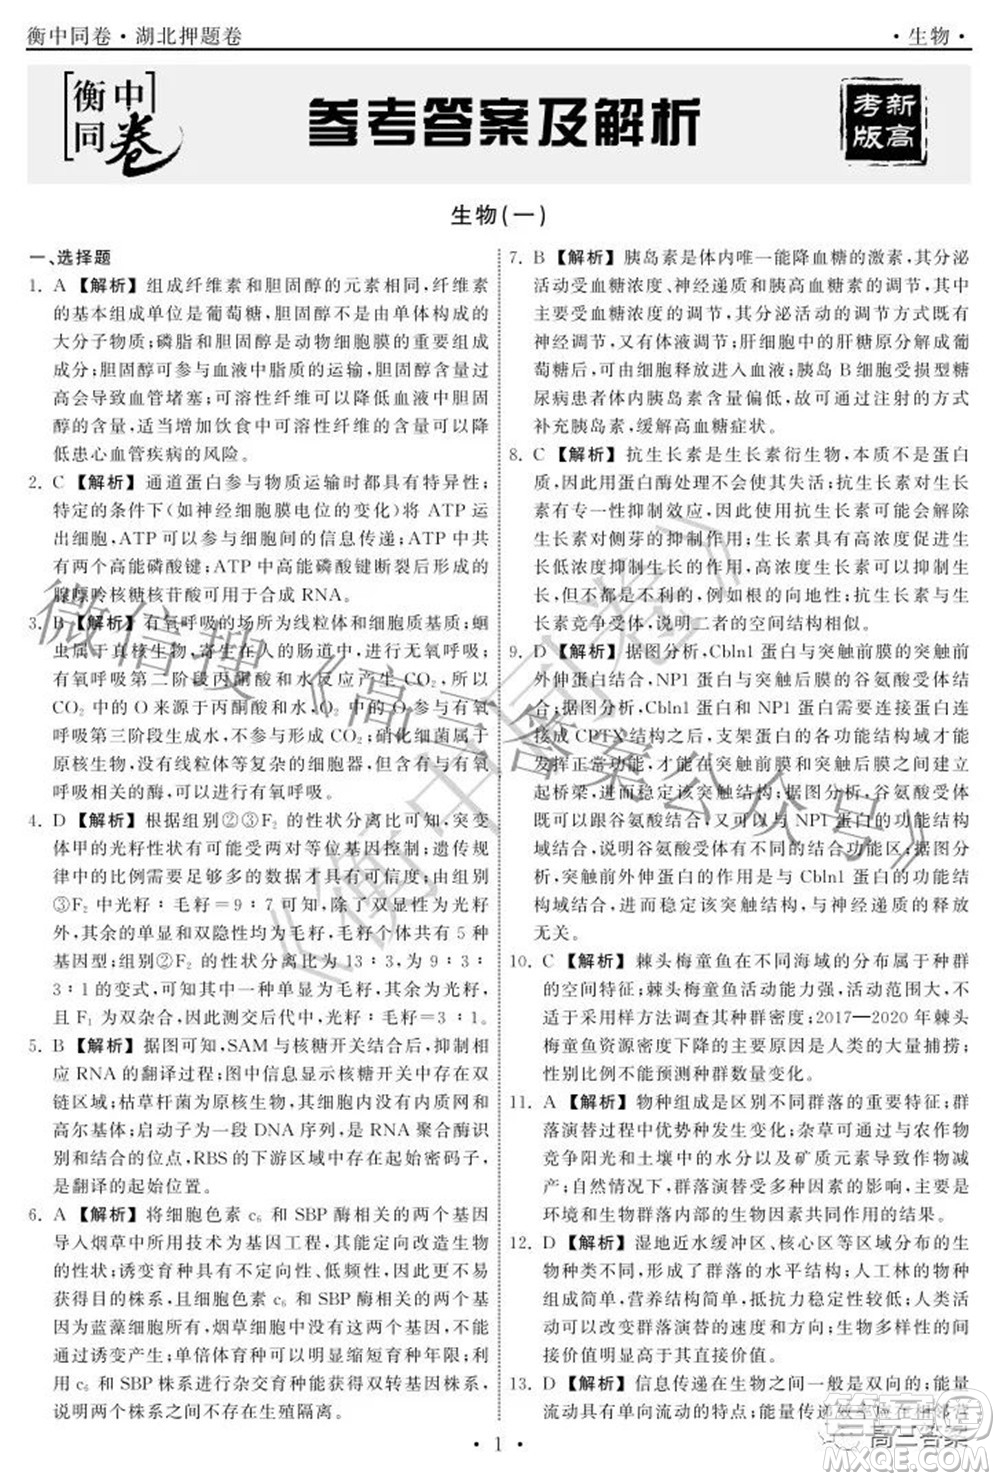 衡中同卷·湖北押题卷
·生物·
衡中同卷
参考答案及解析
新高考版
生物(一)
一、选择题
1. A 【解析】组成纤维素和胆固醇的元素相同,纤维素
的基本组成单位是葡萄糖,胆固醇不是由单体组成的
大分子物质;磷脂和胆固醇是动物细胞膜的重要组成
成分;胆固醇可参与血液中脂质的运输,但胆固醇过
高会导致血管堵塞;可溶性纤维可以降低血液中胆固
醇的含量,适当增加饮食中可溶性纤维的含量可以降
低患心血管疾病的风险。
2. C 【解析】通道蛋白参与物质运输时都具有特异性;
特定的条件下(如神经细胞膜电位的变化)将 ATP 运
出细胞,ATP 可以参与细胞间的信息传递;ATP 中共
有两个高能磷酸键;ATP 中高能磷酸键断裂后形成的
腺嘌呤核糖核苷酸可用于合成 RNA。
3. B 【解析】有氧呼吸的场所为线粒体和细胞质基质;蛔
虫属于真核生物,寄生在人的肠道中,进行无氧呼吸;
有氧呼吸第二阶段丙酮酸和水反应产生 CO₂,所以
CO₂ 中的 O 来源于丙酮酸和水,O₂ 中的 O 参与有氧
呼吸第三阶段生成水,不会形成 CO₂;硝化细菌属于
原核生物,没有线粒体等复杂的细胞器,但有与有氧呼
吸有关的酶,能进行有氧呼吸。
4. D 【解析】根据组别②③F₂ 的性状分离比可知,突变
体甲的光籽性状有可能受两对等位基因控制;遗传规
律中的比例需要足够多的数据才具有可信度;由组别
③F₂ 中光籽∶毛籽=9∶7 可知,双显性为光籽,其
余的单显和双隐性均为毛籽,毛籽个体共有 5 种
基因型;组别②F₂ 的性状分离比为 13∶3,为 9∶3∶
3∶1 的变式,可知其中一种单显为毛籽,其余为光籽,
且 F₁ 为双杂合,因此测交后代中,光籽∶毛籽=3∶1。
5. B 【解析】据图可知,SAM 与核糖开关结合后,抑制相
应 RNA 的翻译过程;图中信息显示核糖开关存在双
链区域;枯草杆菌为原核生物,其细胞内没有内质网和
高尔基体;启动子为一段 DNA 序列,是 RNA 聚合酶识
别和结合的位点,RBS 的下游区域中存在起始密码子,
是翻译的起始位置。
6. A 【解析】将细胞色素 c₆ 和 SBP 酶相关的两个基因
导入烟草中所用技术为转基因技术,其能定向改造生物
的性状;诱变育种具有不定向性、低频性等,不易
获得目的株系,且细胞色素 c₆ 和 SBP 酶相关的基因
在蓝藻细胞里,所以烟草细胞中没有这两个基因,不能
发生诱变;单倍体育种可以明显缩短育种年限;可以
利用转 c₆ 和 SBP 株系进行杂交育种获得双转基因株系,
说明两个株系之间不存在生殖隔离。
7. B 【解析】胰岛素是体内唯一能降血糖的激素,其分泌
主要受血糖浓度、神经递质及胰高血糖素的调节,其中
主要受血糖浓度的调节,其分泌活动的调节方式既有
神经调节,又有体液调节;肝细胞中的肝糖原可水解成葡
萄糖,并由细胞释放进入血液;胰岛 B 细胞受损型糖
尿病患者体内胰岛素含量偏低,可通过注射的方式
补充胰岛素,缓解高血糖症状。
8. C 【解析】抗生长素是生长素衍生物,不是蛋白质,所
以用蛋白酶处理不会失去活性;抗生长素和生长素具
有一定的竞争性抑制效应,因此抗生长素可能会解除
生长素对侧芽的抑制作用;高浓度的抗生长素可以抑
制低浓度生长素的作用,例如根的向地性;抗生长素与
生长素竞争受体,说明二者的空间结构相似。
9. D 【解析】据图分析,Cbln1 蛋白与突触前膜的突触前
外伸蛋白结合,NP1 蛋白与突触后膜的谷氨酸受体结
合;据图分析,Cbln1 蛋白和 NP1 蛋白需要连接肽形
成 CPTX 结构之后,支架蛋白的各功能结构域才能
发挥正常功能,从而能够在突触前膜和突触后膜之间
起桥梁作用,稳定该突触结构;据图分析,谷氨酸受体
可以跟不止一个谷氨酸结合,可以与 NP1 蛋白的功能结构
域结合,说明谷氨酸受体有多个结合功能区;据图分析,
突触前外伸蛋白可以通过与 Cbln1 蛋白的功能结
构域结合,进而稳定该突触结构,与神经递质的释放
无关。
10. C 【解析】棘头梅童鱼在不同海域的分布属于种群
的空间特征;棘头梅童鱼活动能力强,活动范围大,不
适合采用样方法调查其种群密度;2017—2020 年棘头
梅童鱼资源密度下降的主要原因是人类的大量捕捞;
性别比例不能预测种群数量变化。
11. A 【解析】物种组成是区别不同群落的重要特征;群
落演替过程中优势种发生变化;杂草可通过与农作物
竞争阳光和土壤中的水分以及矿质元素使作物减
产;自然群落演替受多种因素的影响,演替主要是
环境和生物群落内部的生物因素共同作用的结果。
12. D 【解析】湿地近水缓冲区、核心区等区域内分布的
生物类型不同,属于群落的水平结构;人工林的物种
类型单一,营养结构简单,抵抗力稳定性较低;人类活动
可以改变群落演替的速度和方向;生物多样性的间
接价值明显高于其直接价值。
13. D 【解析】信息传递在生物之间一般是双向的;能量
流动具有单向流动的特点;能量传递效率应为相邻营
·1·
微信搜《高三答案公众号》
《衡中同卷》
答案圈
高三答案